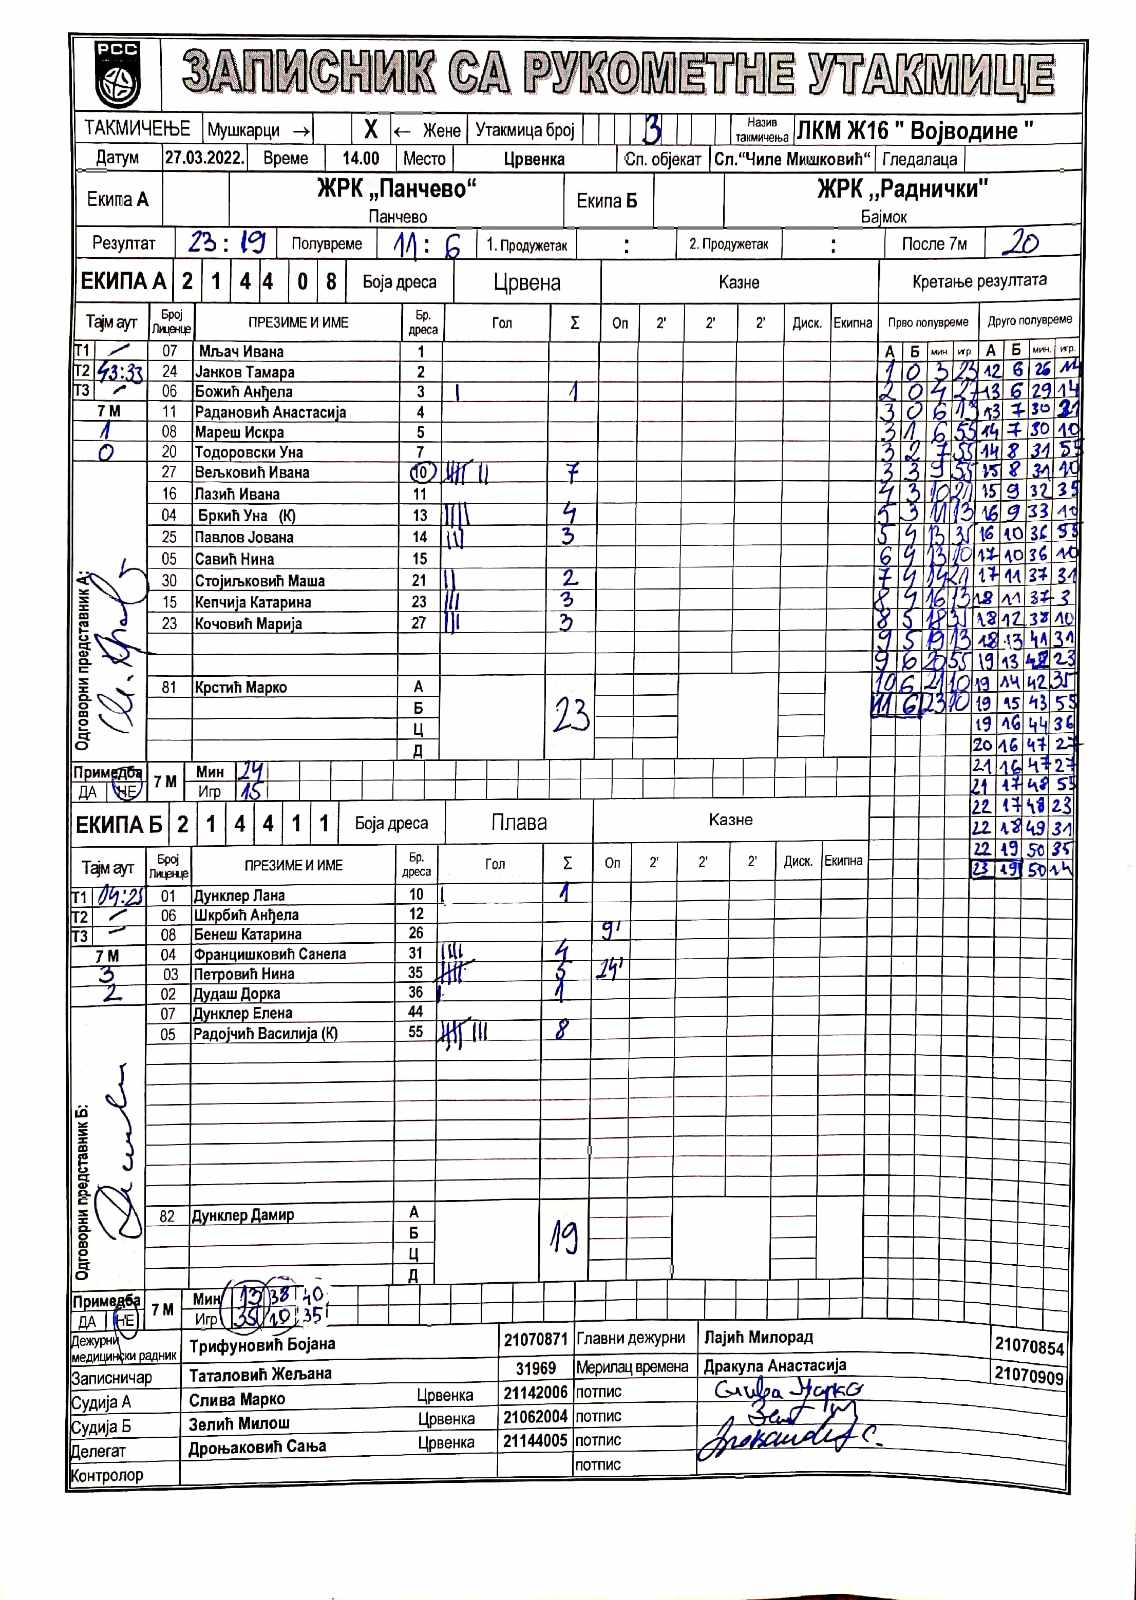 РСС
ЗАПИСНИК СА РУКОМЕТНЕ УТАКМИЦЕ
ТАКМИЧЕЊЕ Мушкарци → X ← Жене Утакмица број 3 Назив такмичења ЛКМ Ж16 " Војводине "
Датум 27.03.2022. Време 14.00 Место Црвенка Сп. објекат Сл."Чиле Мишковић" Гледалаца
Екипа А ЖРК „Панчево“ Екипа Б ЖРК ,,Раднички"
Панчево Бајмок
Резултат 23:19 Полувреме 11:6 1. Продужетак : 2. Продужетак : После 7м 20
ЕКИПА А 2 1 4 4 0 8 Боја дреса Црвена Казне Кретање резултата
Тајм аут Број Лиценце ПРЕЗИМЕ И ИМЕ Бр. дреса Гол Σ Оп 2' 2' 2' Диск. Екипна Прво полувреме Друго полувреме
А Б мин игр А Б мин. игр.
Т1 – 07 Мљач Ивана 1
Т2 43:33 24 Јанков Тамара 2 1 0 3 23 12 6 26 14
Т3 – 06 Божић Анђела 3 I 1 2 0 4 27 13 6 29 14
7 М 11 Радановић Анастасија 4 3 0 6 13 13 7 30 31
1 08 Мареш Искра 5 3 1 6 55 14 7 30 10
0 20 Тодоровски Уна 7 3 2 7 55 14 8 31 55
27 Вељковић Ивана 10 7 3 3 9 55 15 8 31 10
16 Лазић Ивана 11 4 3 10 21 15 9 32 35
04 Бркић Уна (К) 13 IIII 4 5 3 11 13 16 9 33 10
25 Павлов Јована 14 III 3 5 4 13 35 16 10 36 55
05 Савић Нина 15 6 4 13 10 17 10 36 10
30 Стојиљковић Маша 21 II 2 7 4 14 21 17 11 37 31
15 Кепчија Катарина 23 III 3 8 4 16 13 18 11 37 3
23 Кочовић Марија 27 III 3 8 5 18 35 18 12 38 10
9 5 19 13 18 13 41 31
9 6 20 55 19 13 42 23
81 Крстић Марко А 10 6 21 10 19 14 42 35
Б 23 11 6 23 10 19 15 43 55
Ц 19 16 44 36
Д 20 16 47 27
Примедба 7 М Мин 24 21 16 47 27
ДА НЕ Игр 15 21 17 48 55
ЕКИПА Б 2 1 4 4 1 1 Боја дреса Плава Казне 22 17 48 23
22 18 49 31
Тајм аут Број Лиценце ПРЕЗИМЕ И ИМЕ Бр. дреса Гол Σ Оп 2' 2' 2' Диск. Екипна 22 19 50 35
23 19 50 14
Т1 04:25 01 Дунклер Лана 10 I 1
Т2 – 06 Шкрбић Анђела 12
Т3 – 08 Бенеш Катарина 26 9'
7 М 04 Францишковић Санела 31 IIII 4
3 03 Петровић Нина 35 5 24'
2 02 Дудаш Дорка 36 I 1
07 Дунклер Елена 44
05 Радојчић Василија (К) 55 8
Одговорни представник А:
Одговорни представник Б:
82 Дунклер Дамир А
Б 19
Ц
Д
Примедба 7 М Мин 13 38 40
ДА НЕ Игр 35 10 35
Дежурни медицински радник Трифуновић Бојана 21070871 Главни дежурни Лајић Милорад 21070854
Записничар Таталовић Жељана 31969 Мерилац времена Дракула Анастасија 21070909
Судија А Слива Марко Црвенка 21142006 потпис Слива Марко
Судија Б Зелић Милош Црвенка 21062004 потпис
Делегат Дроњаковић Сања Црвенка 21144005 потпис
Контролор потпис